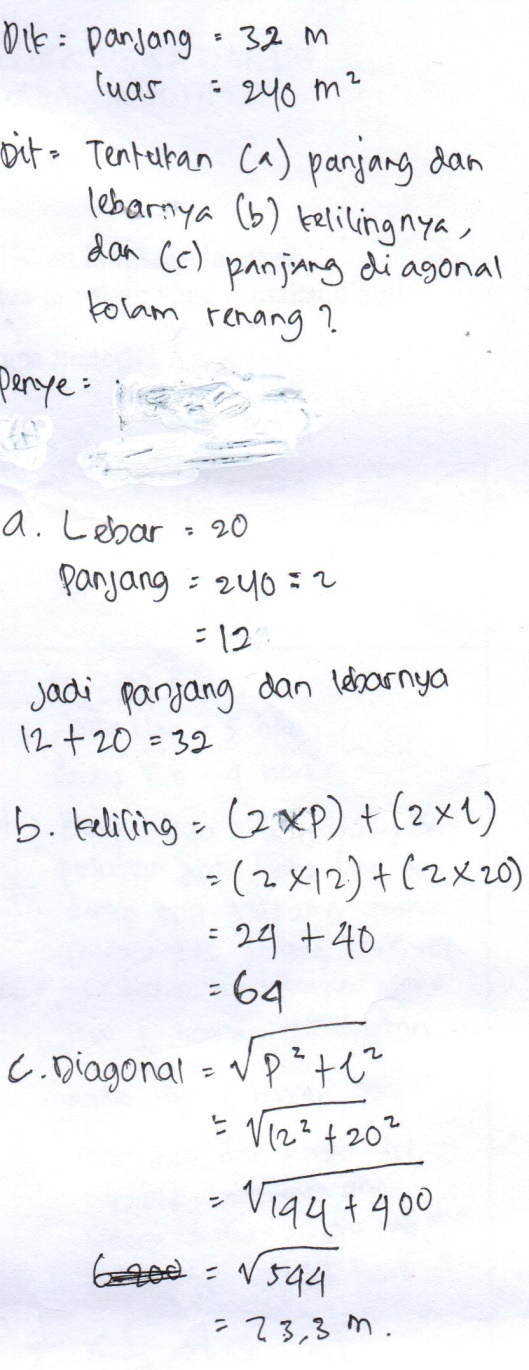 Dik : panjang = 32 m
luas = 240 m²
Dit = Tentukan (a) panjang dan
lebarnya (b) kelilingnya,
dan (c) panjang diagonal
kolam renang ?
Penye :
a. Lebar = 20
Panjang = 240 = 2
= 12
Jadi panjang dan lebarnya
12 + 20 = 32
b. keliling = (2 x P) + (2 x l)
= (2 x 12) + (2 x 20)
= 24 + 40
= 64
c. Diagonal = √P² + l²
= √12² + 20²
= √144 + 400
= √544
= 23,3 m.